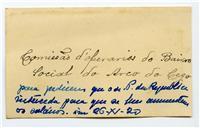 Comissão d'operarios do Bairro
Social do Arco do Cego
para pedirem que o P. da Republica
interceda para que se lhes aumentem
os salarios. em 26-XI-20